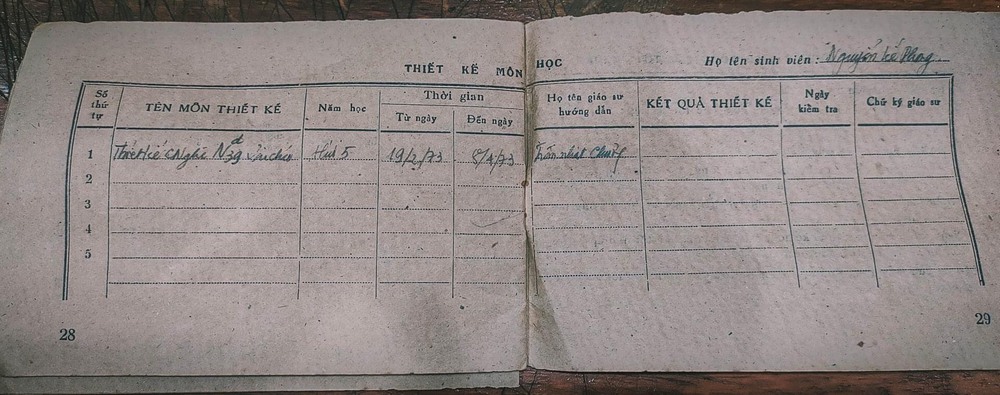 THIẾT KẾ MÔN HỌC
Họ tên sinh viên: Nguyễn Kế Phong
Số thứ tự TÊN MÔN THIẾT KẾ Năm học Thời gian Họ tên giáo sư hướng dẫn KẾT QUẢ THIẾT KẾ Ngày kiểm tra Chữ ký giáo sư
Từ ngày Đến ngày
1 Thiết kế 19/2/73 8/4/73 Trần nhật
2
3
4
5
28
29